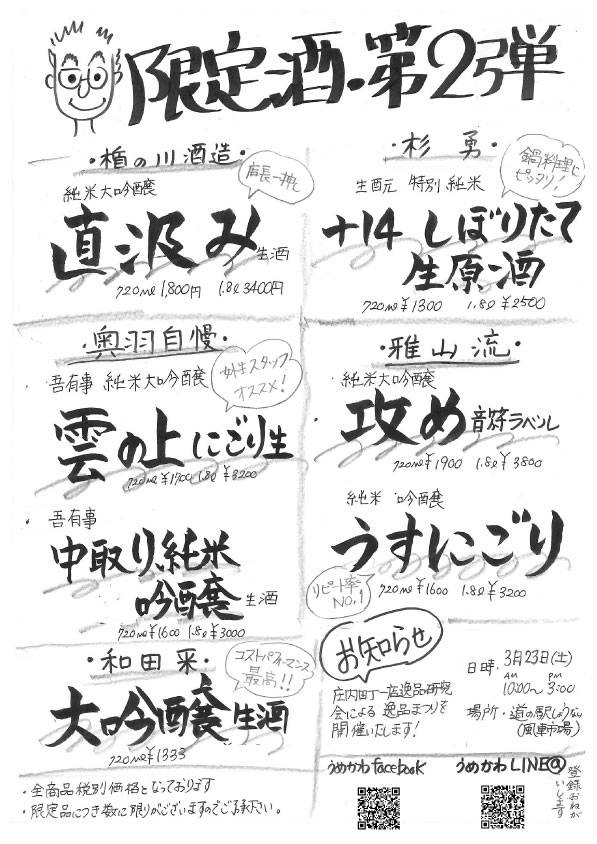 限定酒・第2弾
・楯の川酒造・
純米大吟醸
店長一押し
直汲み 生酒
720ml 1,800円 1.8l 3400円
・杉 勇・
鍋料理に
ピッタリ！
生酛元 特別純米
+14 しぼりたて
生原酒
720ml ¥1300 1.8l ¥2500
・奥羽自慢・
女性スタッフ
オススメ！
吾有事 純米大吟醸
雲の上にごり生
720ml ¥1700 1.8l ¥3200
吾有事
中取り純米
吟醸 生酒
720ml ¥1600 1.8l ¥3000
・雅山流・
純米大吟醸
攻め 音符ラベル
720ml ¥1900 1.8l ¥3800
純米 吟醸
うすにごり
リピート率
No.1
720ml ¥1600 1.8l ¥3200
・和田来・
コストパフォーマンス
最高！！
大吟醸 生酒
720ml ¥1333
お知らせ
庄内町一店逸品研究
会による 逸品まつりを
開催いたします！
日時 3月23日(土)
AM PM
10:00〜3:00
場所・道の駅しょうない
(風車市場)
・全商品税別価格となっております
・限定品につき数に限りがございますのでご了承下さい。
うめかわfacebook
うめかわLINE@
登録おねが
いします